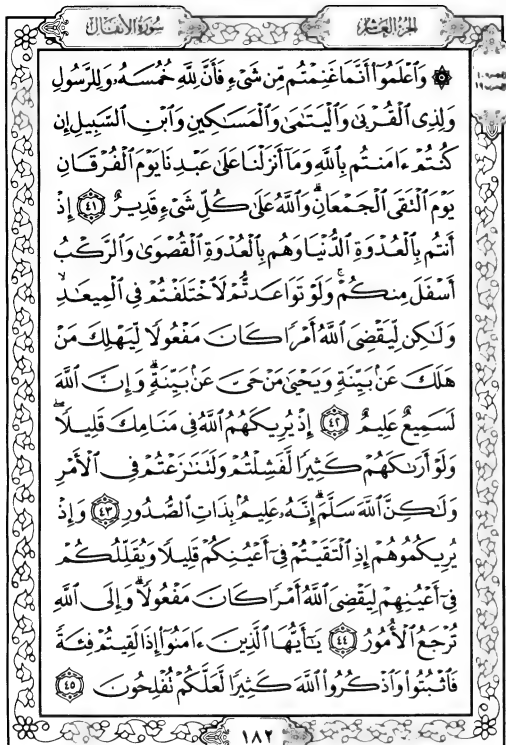 الجزء العاشر سورة الأنفال
۞ وَٱعْلَمُوٓا۟ أَنَّمَا غَنِمْتُم مِّن شَىْءٍ فَأَنَّ لِلَّهِ خُمُسَهُۥ وَلِلرَّسُولِ
وَلِذِى ٱلْقُرْبَىٰ وَٱلْيَتَـٰمَىٰ وَٱلْمَسَـٰكِينِ وَٱبْنِ ٱلسَّبِيلِ إِن
كُنتُمْ ءَامَنتُم بِٱللَّهِ وَمَآ أَنزَلْنَا عَلَىٰ عَبْدِنَا يَوْمَ ٱلْفُرْقَانِ
يَوْمَ ٱلْتَقَى ٱلْجَمْعَانِ ۗ وَٱللَّهُ عَلَىٰ كُلِّ شَىْءٍ قَدِيرٌ ٤١ إِذْ
أَنتُم بِٱلْعُدْوَةِ ٱلدُّنْيَا وَهُم بِٱلْعُدْوَةِ ٱلْقُصْوَىٰ وَٱلرَّكْبُ
أَسْفَلَ مِنكُمْ ۚ وَلَوْ تَوَاعَدتُّمْ لَٱخْتَلَفْتُمْ فِى ٱلْمِيعَـٰدِ ۙ
وَلَـٰكِن لِّيَقْضِىَ ٱللَّهُ أَمْرًا كَانَ مَفْعُولًا لِّيَهْلِكَ مَنْ
هَلَكَ عَنۢ بَيِّنَةٍ وَيَحْيَىٰ مَنْ حَىَّ عَنۢ بَيِّنَةٍ ۗ وَإِنَّ ٱللَّهَ
لَسَمِيعٌ عَلِيمٌ ٤٢ إِذْ يُرِيكَهُمُ ٱللَّهُ فِى مَنَامِكَ قَلِيلًا ۖ
وَلَوْ أَرَىٰكَهُمْ كَثِيرًا لَّفَشِلْتُمْ وَلَتَنَـٰزَعْتُمْ فِى ٱلْأَمْرِ
وَلَـٰكِنَّ ٱللَّهَ سَلَّمَ ۗ إِنَّهُۥ عَلِيمٌۢ بِذَاتِ ٱلصُّدُورِ ٤٣ وَإِذْ
يُرِيكُمُوهُمْ إِذِ ٱلْتَقَيْتُمْ فِىٓ أَعْيُنِكُمْ قَلِيلًا وَيُقَلِّلُكُمْ
فِىٓ أَعْيُنِهِمْ لِيَقْضِىَ ٱللَّهُ أَمْرًا كَانَ مَفْعُولًا ۗ وَإِلَى ٱللَّهِ
تُرْجَعُ ٱلْأُمُورُ ٤٤ يَـٰٓأَيُّهَا ٱلَّذِينَ ءَامَنُوٓا۟ إِذَا لَقِيتُمْ فِئَةً
فَٱثْبُتُوا۟ وَٱذْكُرُوا۟ ٱللَّهَ كَثِيرًا لَّعَلَّكُمْ تُفْلِحُونَ ٤٥
١٨٢